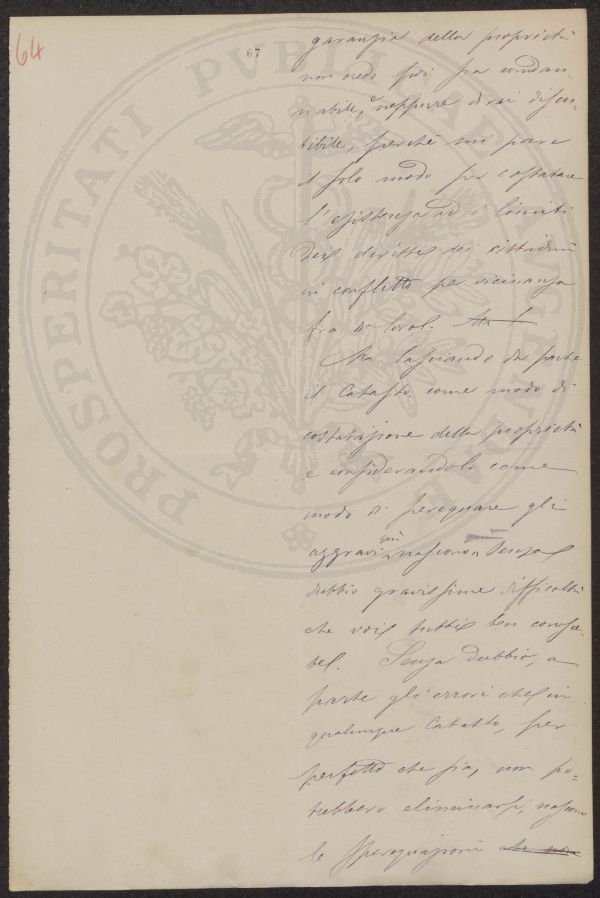 64
67
PROSPERITATI PVBLICAE AVGENDAE
garanzia della proprietà
non credo poi sia condan-
nabile, o neppure direi discu-
tibile, perchè mi pare
il solo modo per costatare
l'esistenza ed i limiti
dei diritti dei cittadini
in conflitto per vicinanza
fra di loro.
Ma lasciando da parte
il Catasto come modo di
costatazione della proprietà
e considerandolo come
modo di perequare gli
aggravi, qui nascono senza
dubbio gravissime difficoltà
che voi tutti ben conosce-
te. Senza dubbio, a
parte gli errori che in
qualunque Catasto, per
perfetto che sia, non po-
trebbero eliminarsi, nascono
le sperequazioni che no